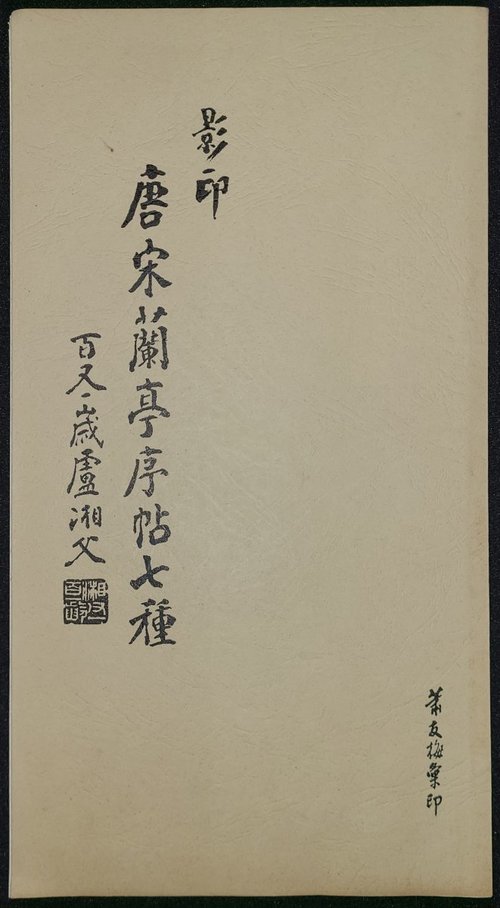 影印
唐宋蘭亭序帖七種
百又一歲盧湘父
蕭友梅彙印